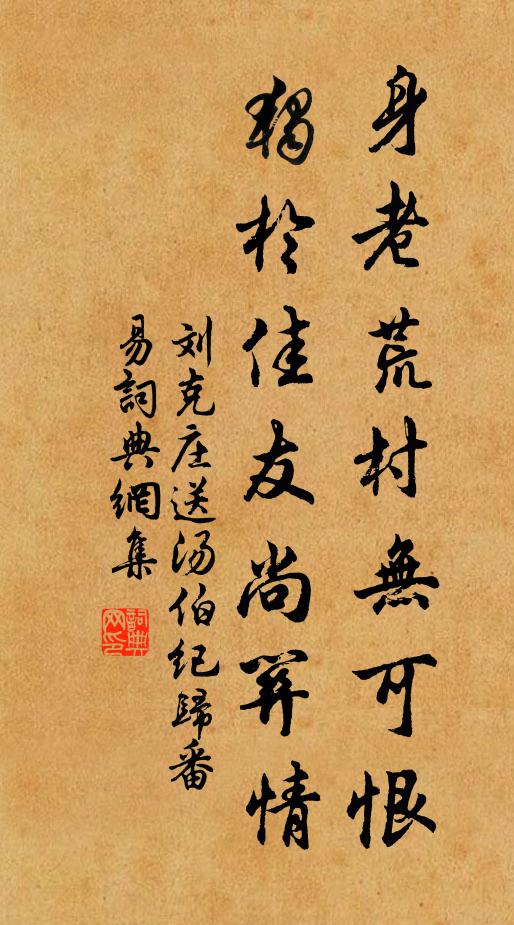 身老荒村無可恨
獨於佳友尚關情
刘克庄送汤伯纪歸番
易詞典網集
詞典
网印